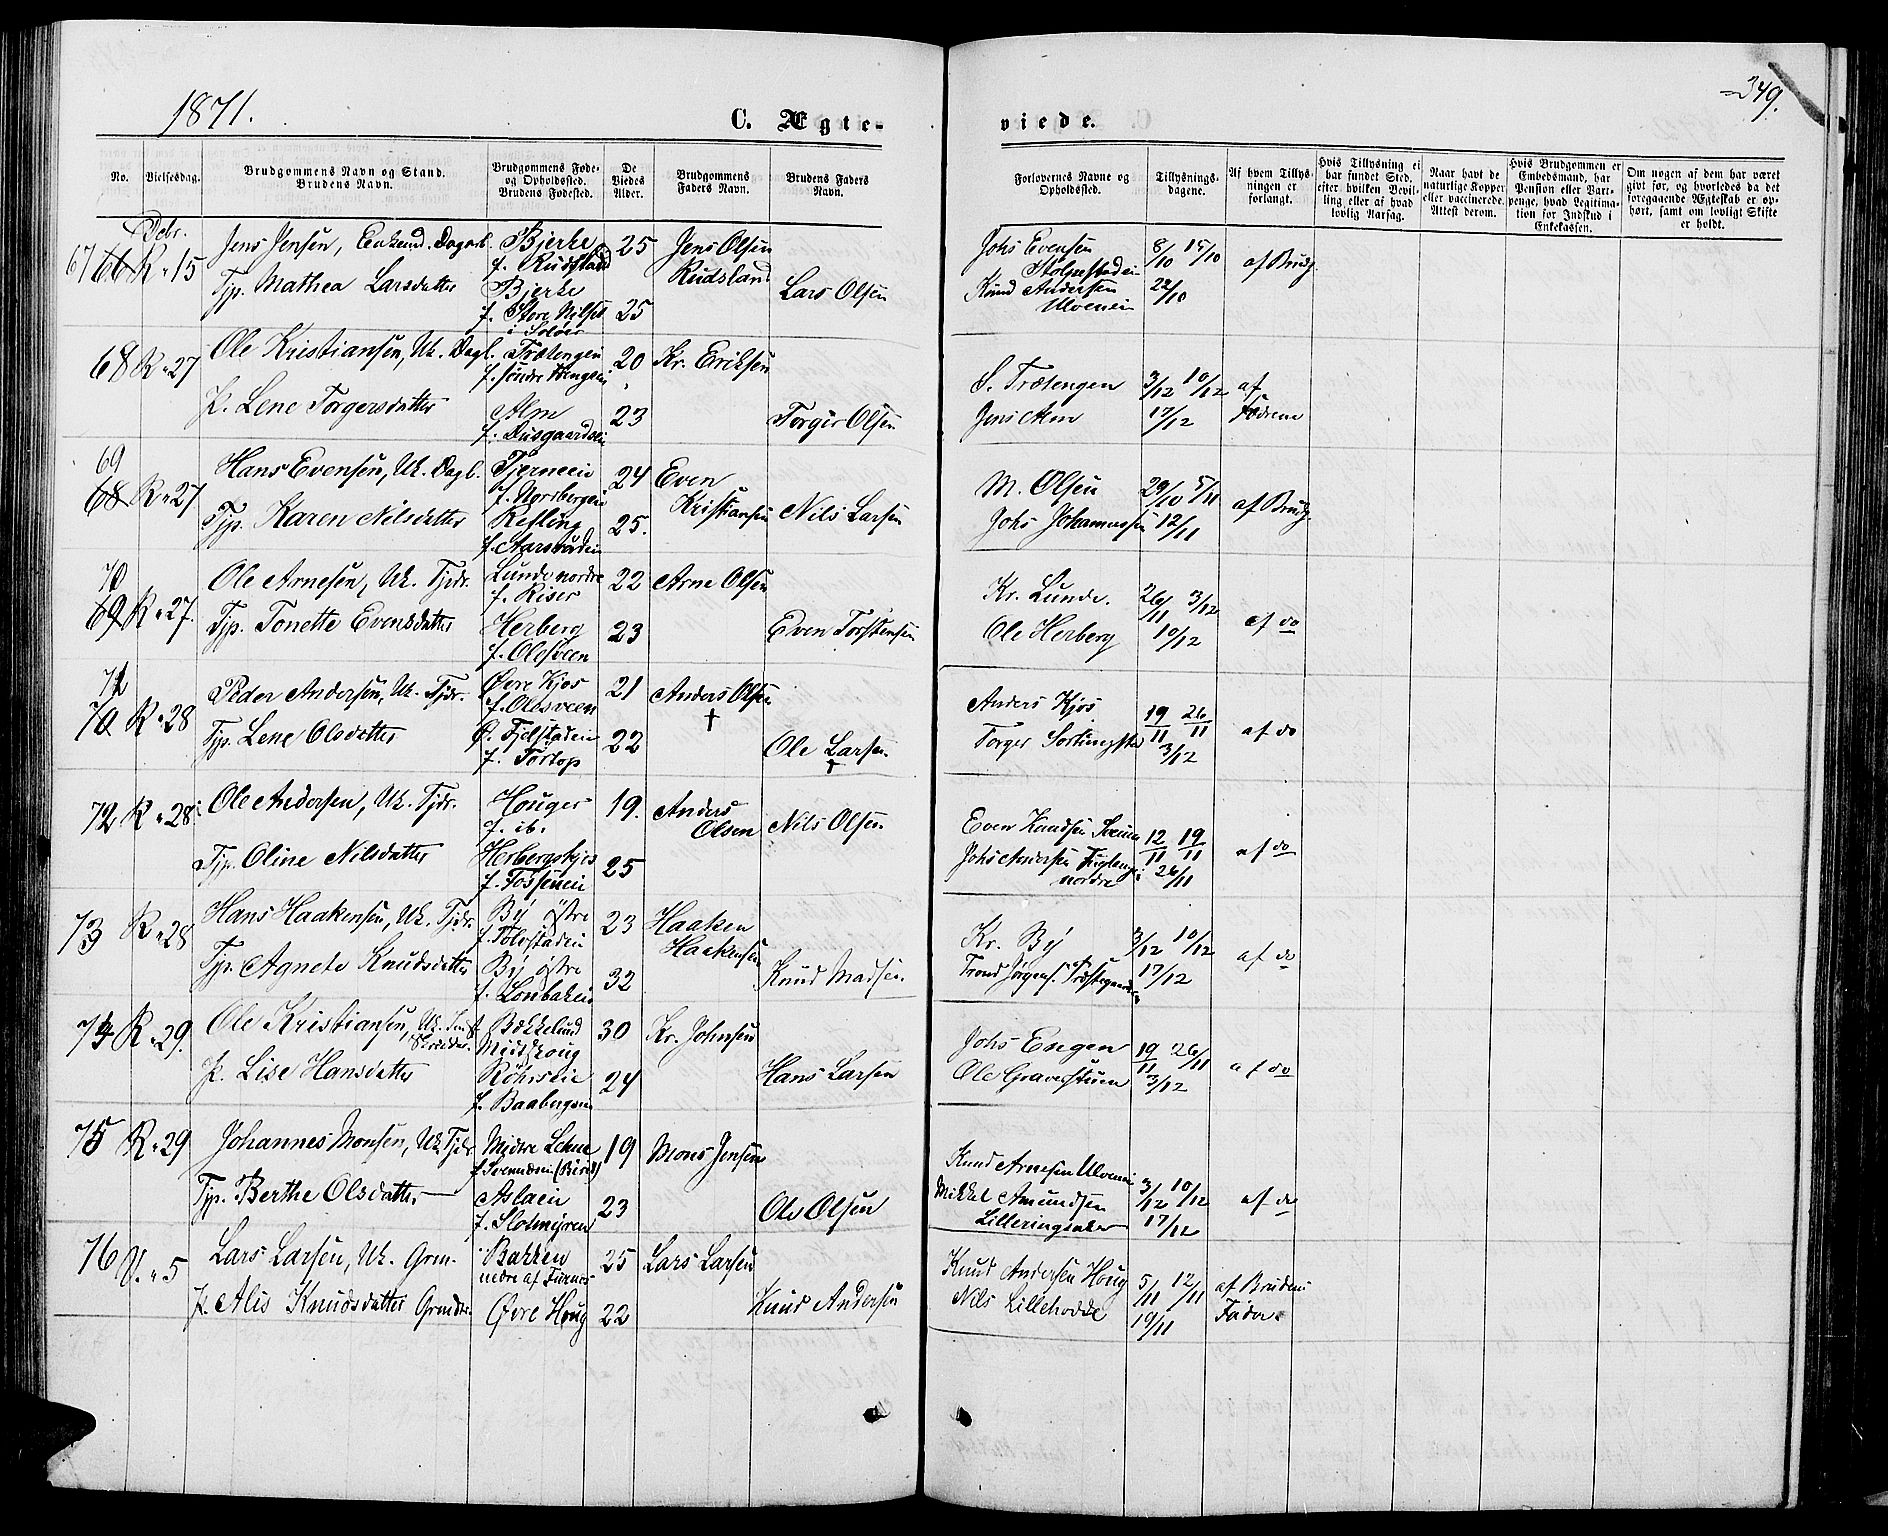 1871.
C. Ægte-
viede.
349.
No.
Vielsesdag.
Brudgommens Navn og Stand.
Brudens Navn.
Brudgommens Føde-
og Opholdssted.
Brudens Fødested.
De
Viedes
Alder.
Brudgommens
Faders Navn.
Brudens Faders
Navn.
Forlovernes Navne og
Opholdssted.
Tillysnings-
dagene.
Af hvem Tillys-
ningen er
forlangt.
Hvis Tillysning ei
har fundet Sted,
efter hvilken Bevil-
ling eller af hvad
lovlig Aarsag.
Naar havt de
naturlige Kopper
eller vaccinerede.
Attest derom.
Hvis Brudgommen er
Embedsmand, har
Pension eller Vart-
penge, hvad Legitima-
tion for Indskud i
Enkekassen.
Om nogen af dem har været
gift før, og hvorledes da det
foregaaende Ægteskab er op-
hørt, samt om lovligt Skifte
er holdt.
Debr.
67 66 R. " 15 Jens Jensen, Dagarb. Bjerke 25 Jens Olsen
f. Rudsland Rudsland
Tjp. Mathea Larsdatter Bjerke 25 Lars Olsen
f. Store
i Soløer
Johs Evensen 8/10 15/10 af Brudg.
Knud Andersen 22/10
68 R. " 27 Ole Kristiansen, Uk. Dagl. Trætengen 20 Kr. Eriksen
f. søndre
P. Lene Torgersdatter Alm 23 Torger Olsen
S. Trætengen 3/12 10/12 af
Jens Alm 17/12 Fædrene
69
68 R. " 27 Hans Evensen, Uk. Dagl. 24 Even
Kristiansen
Tjp. Karen Nilsdatter Refling 25. Nils Larsen
M. Olsen 29/10 5/11 af Brudg.
Johs Johannessen 12/11
70
69 R. " 27. Ole Arnesen, Uk. Tjdr. Lunde nordre 22 Arne Olsen
f. Riser
Tjp. Tonette Evensdatter Herberg 23 Even Torstensen
f. Olesveen
Kr. Lunde. 26/11 3/12 af do
Ole Herberg 10/12
71
70 R. " 28 Peder Andersen, Uk. Tjdr. Øvre Kjos 21 Anders Olsen
f. Olesveen †
Tjp. Lene Olsdatter 22 Ole Larsen
f. Tørtop †
Anders Kjos 19/11 26/11 af do
Torger 3/12
72 R. " 28 Ole Andersen, Uk. Tjdr. Houger 19. Anders
f. ib. Olsen
Tjp. Oline Nilsdatter Herbergskjos 25 Nils Olsen
f. Fosseneie
Even Knudsen 12/11 19/11 af do
Johs Andersen
nordre 26/11
73 R. " 28 Hans Haakensen, Uk. Tjdr. By østre 23 Haaken
Haakensen
Tjp. Agnete Knudsdatter By østre 32 Knud Madsen.
Kr. By 3/12 10/12 af do
Trond Jørgens. 17/12
74 R. " 29. Ole Kristiansen, Uk. Bækkelund 30 Kr. Johnsen
Skrædder. Midtskoug
P. Lise Hansdatter 24 Hans Larsen
Johs Engen 19/11 26/11 af do
Ole 3/12
75 R. " 29 Johannes Monsen, Uk. Tjdr Midtre 19 Mons Jensen
Tjp. Berthe Olsdatter 23 Ole Olsen
f. Slotmyren
Knud Arnesen 3/12 10/12 af do
Mikkel Amundsen 17/12
76 V. " 5 Lars Larsen, Uk. Grm. Bakken 25 Lars Larsen
nedre af Furnes
P. Alis Knudsdatter Grmdtr. Øvre Houg 22 Knud Andersen
Knud Andersen Houg 5/11 12/11 af Brudens
Nils Lillehovde 19/11 Fader.